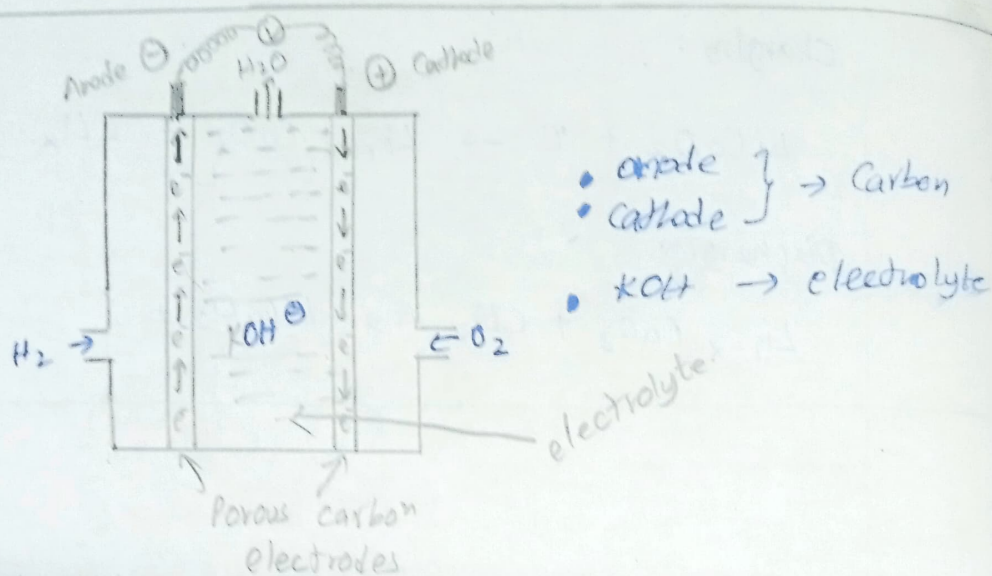 Anode ⊖
H₂O
⊕ Cathode
e e
e e
e e
e e
KOH ⊖
H₂ →
← O₂
electrolyte
Porous carbon
electrodes
• anode
• cathode } → Carbon
• KOH → electrolyte